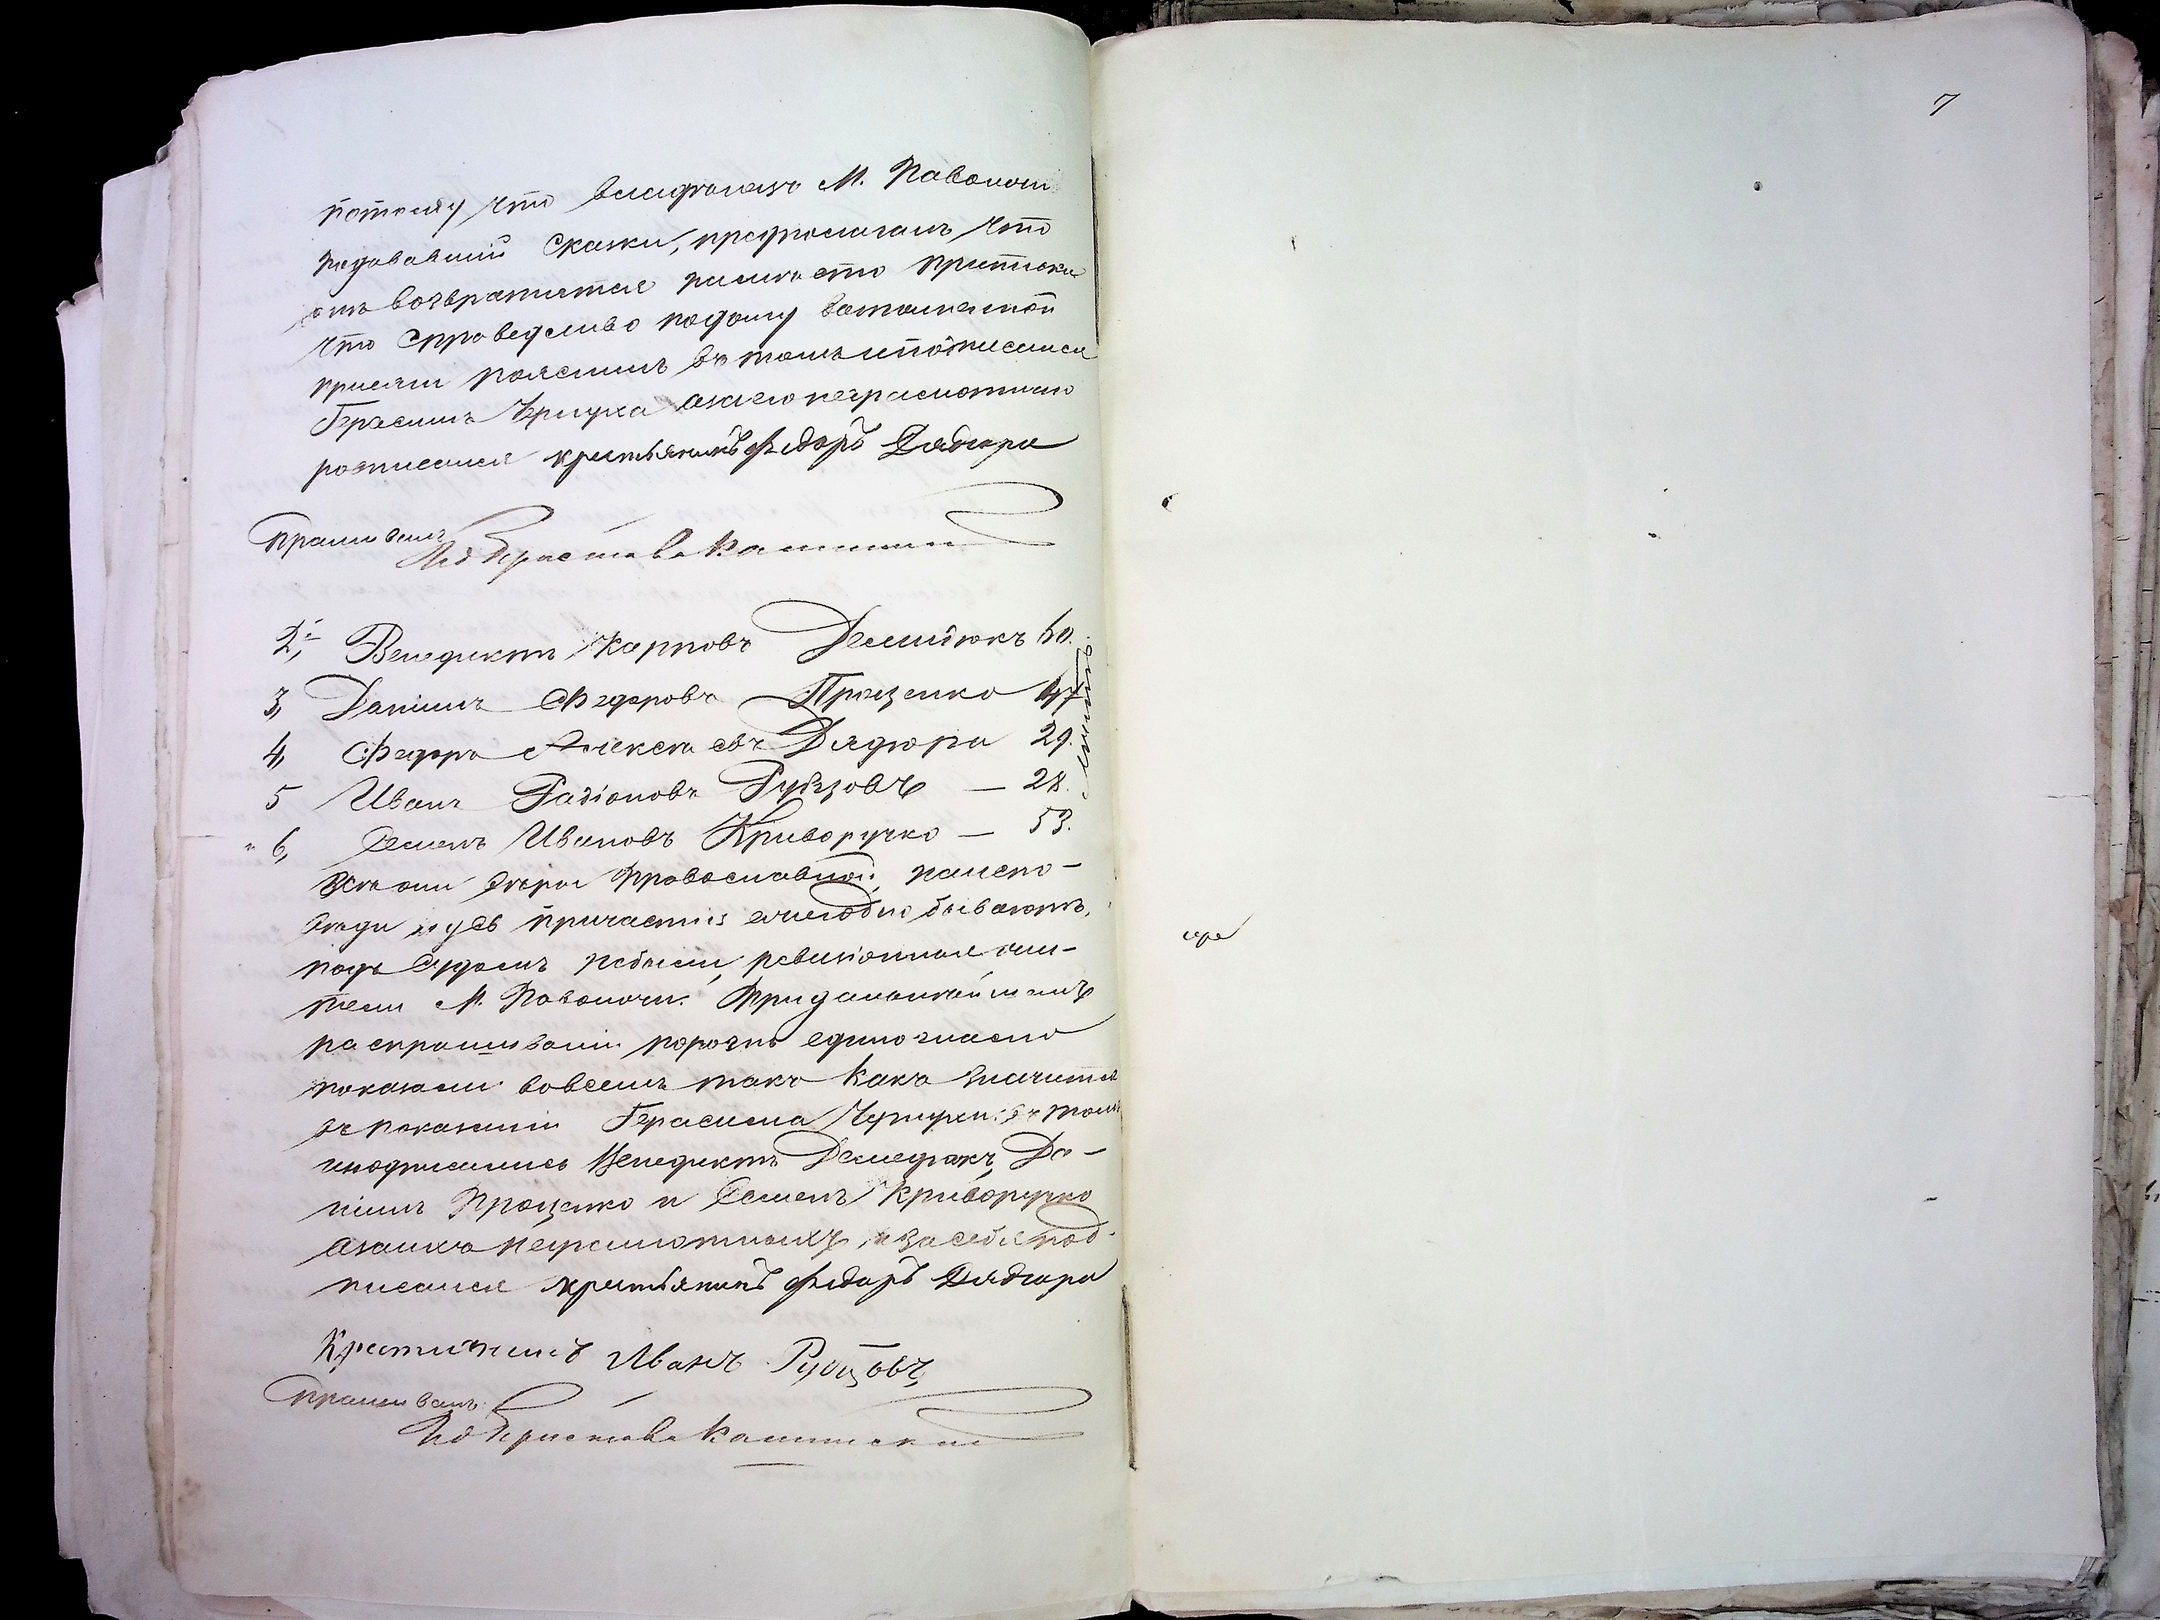 7
потому что владѣлецъ М. Паволочи
подававшій сказки, предполагалъ что
онъ возвратится на мѣсто приписки
что справедливо подому
присяги пояснилъ въ томъ и подписался
Герасимъ Чернуха а за его неграмотнаго
росписался крестьянинъ Федоръ Дядюра
Спрашивалъ
2, Венедиктъ Карповъ Демидюкъ 60.
3, Даніилъ Федоровъ Проценко 47
4, Федоръ Алексѣевъ Дядюра 29.
5 Иванъ Радіоновъ Рубцовъ — 28.
6, Семенъ Ивановъ Криворучко — 53.
лѣтъ
Всѣ они вѣры православной, на испо-
вѣди и у св причастія ежегодно бываютъ,
подъ судомъ небыли, ревизіонные жи-
тели М. Паволочи. При дальнѣйшемъ
распрашиваніи порознь единогласно
показали вовсемъ такъ какъ значится
въ показаніи Герасима Чернухи: въ томъ
и подписались Венедиктъ Демедюкъ, Да-
ніилъ Проценко и Семенъ Криворучко
а за ихъ неграмотныхъ и за себя под-
писался крестьянинъ Федоръ Дядюра
Крестьянинъ Иванъ Рубцовъ
Спрашивалъ